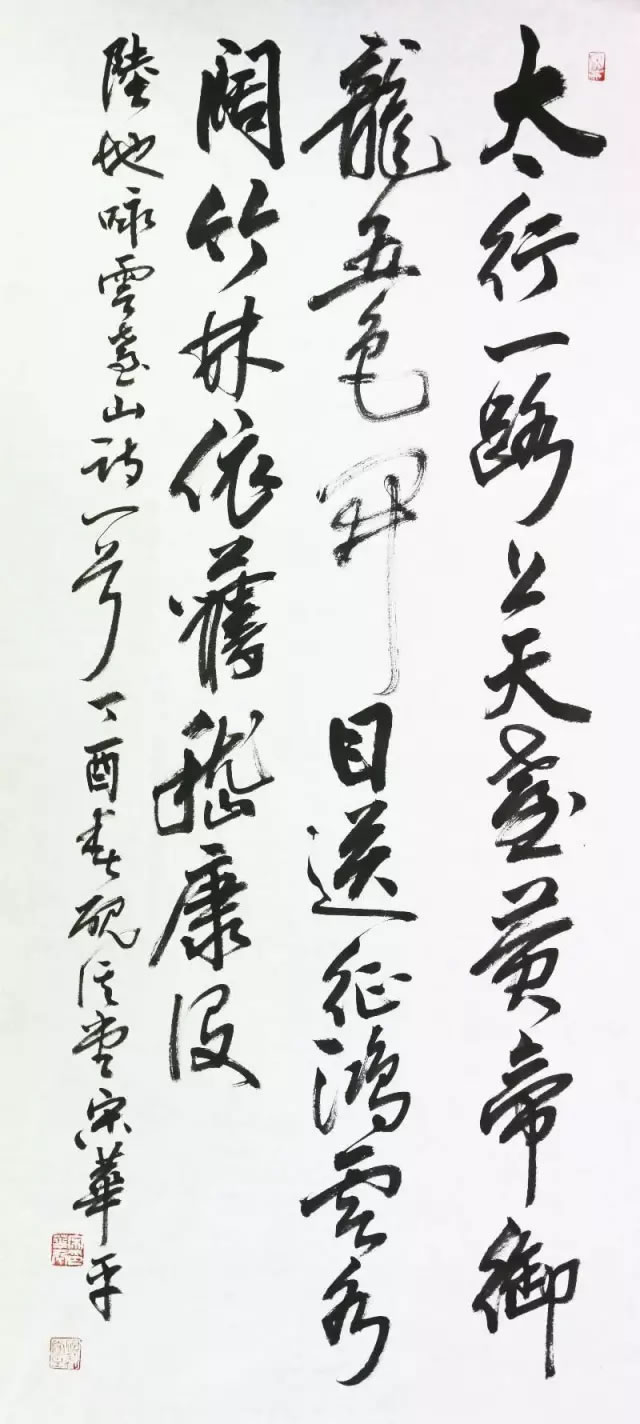 太行一路上天臺黄帝御
龍五色開目送征鴻雲水
闊竹林依舊嵇康
陸地咏雲臺山詩一首丁酉春硯堂宋華平